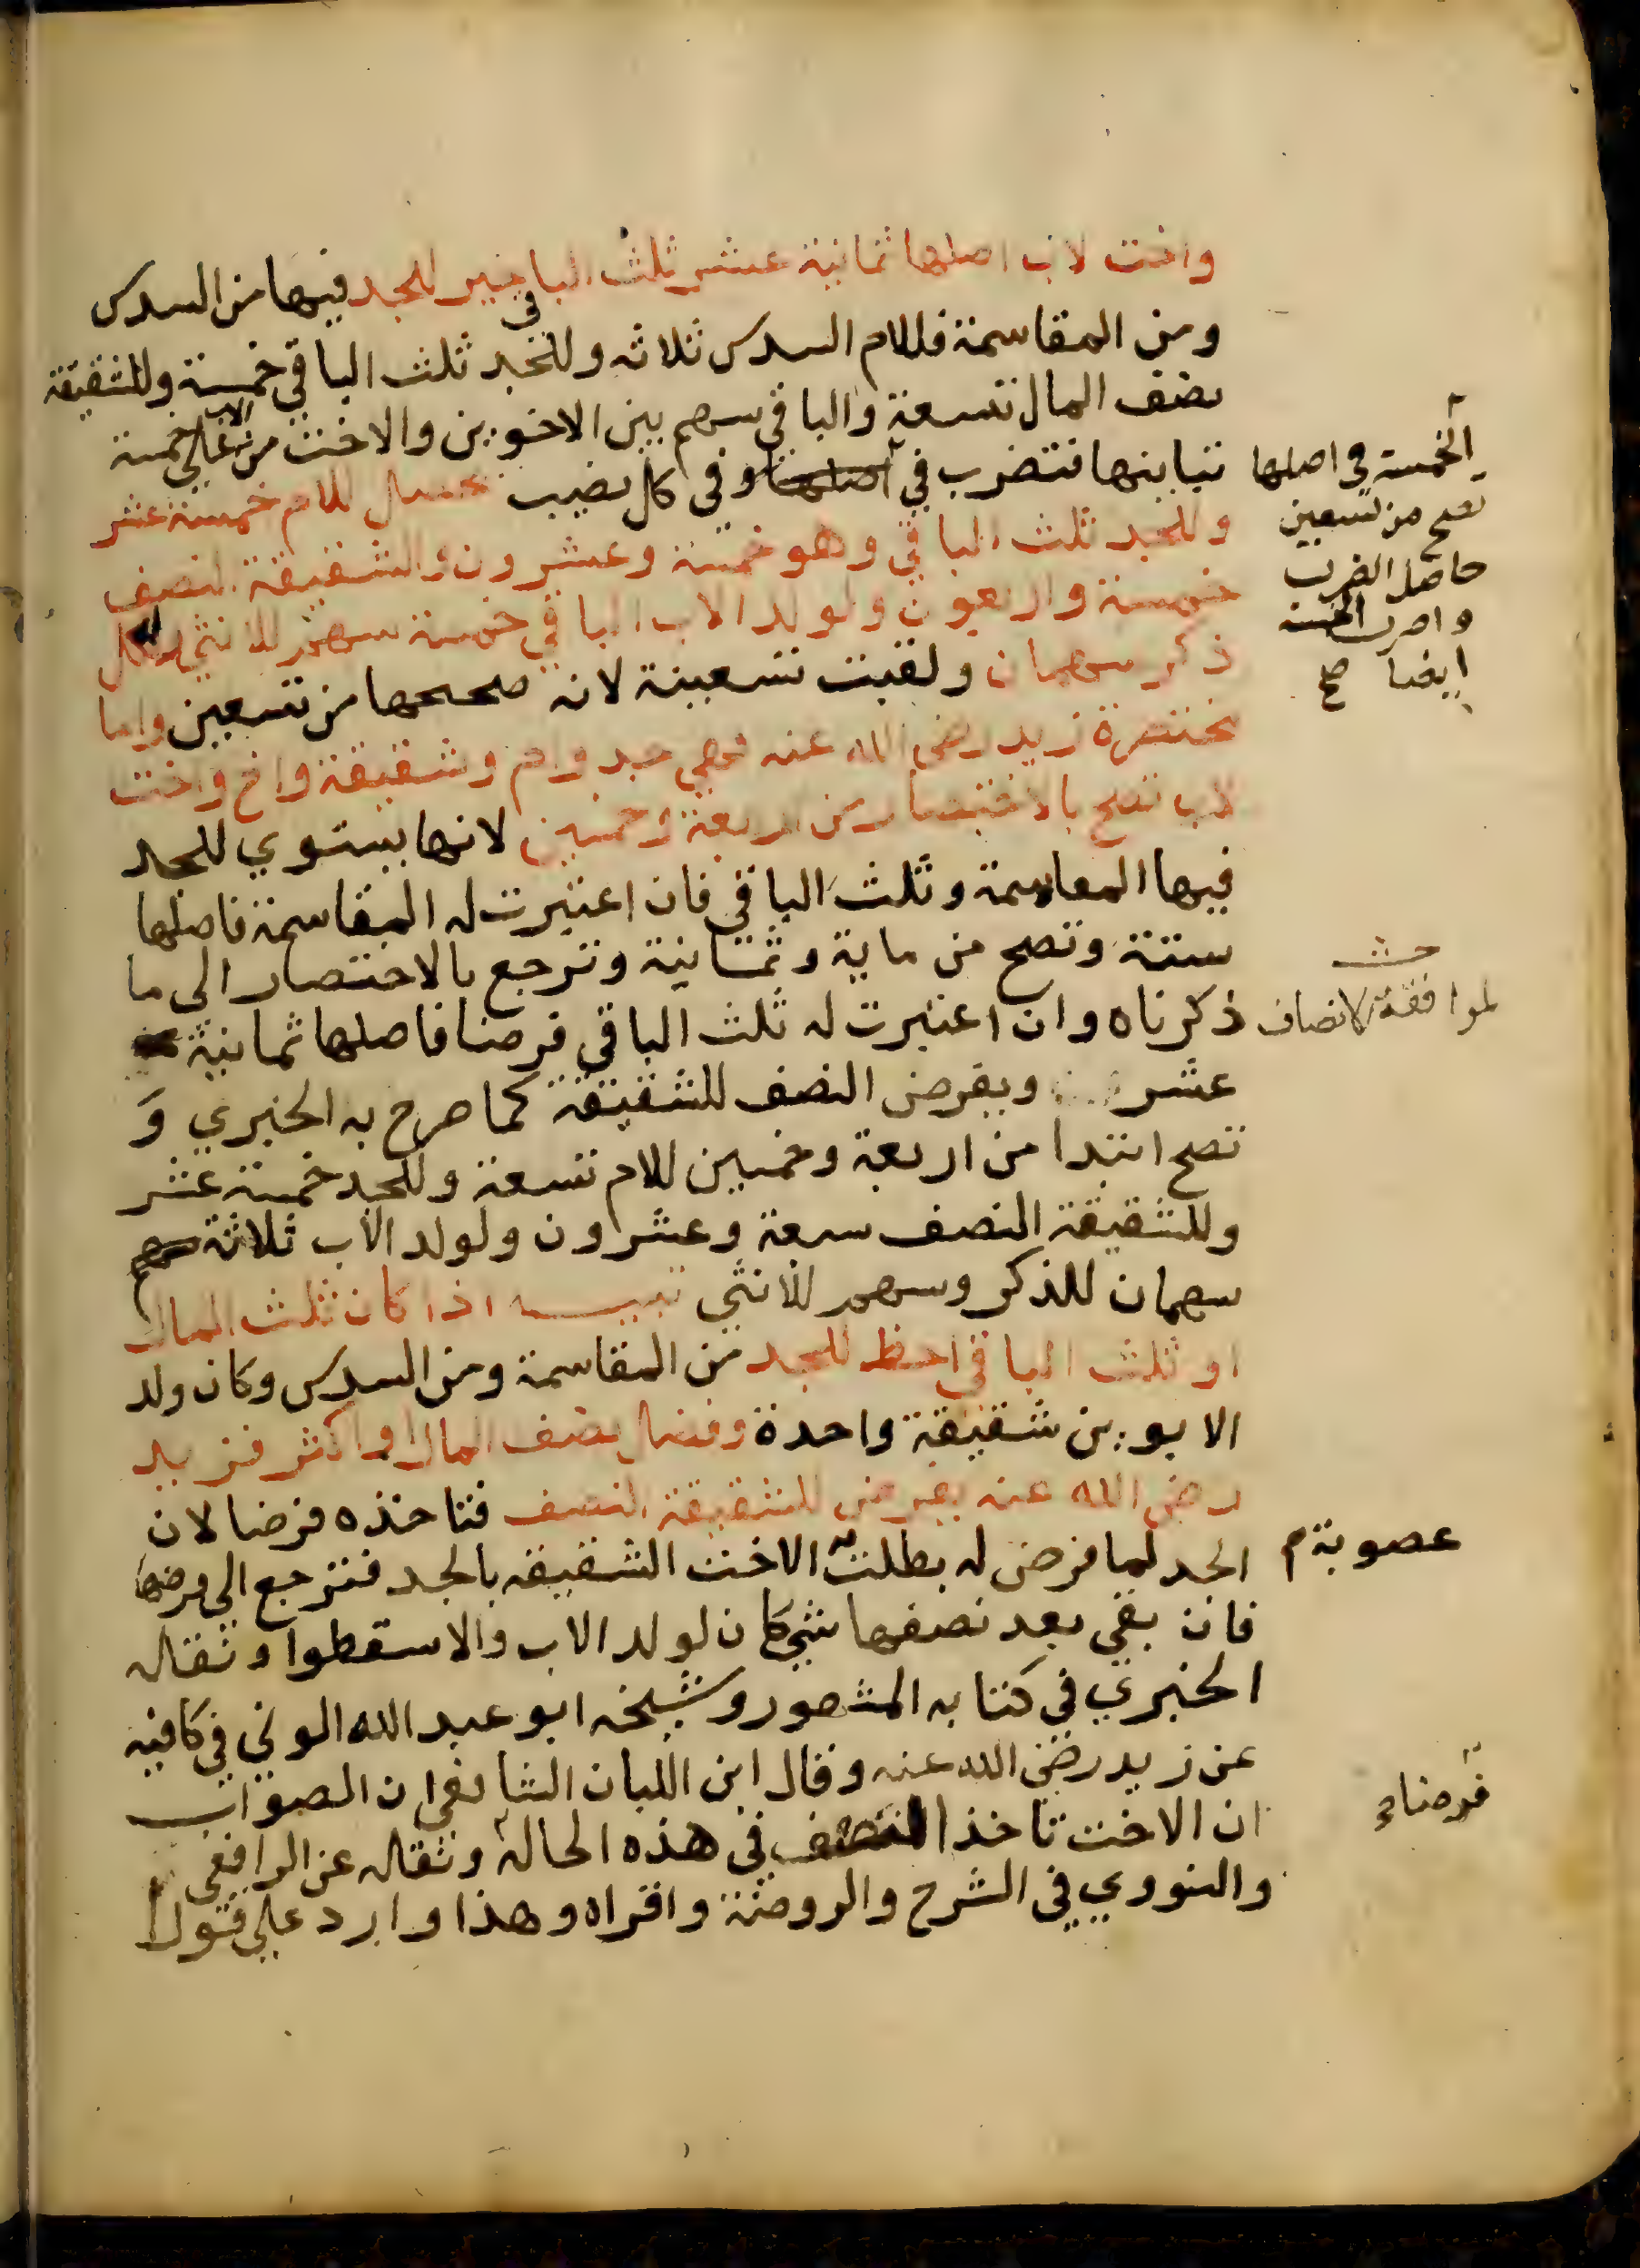 واخت لاب اصلها ثمانية عشر ثلث الباقي خير للجد فيها من السدس
ومن المقاسمة فللام السدس ثلاثه وللجد ثلث الباقي خمسة وللشقيقة
نصف المال تسعة والباقي سهم بين الاخوين والاخت من الاب على خمسة
تباينها فتضرب في اصلها وفي كل نصيب يحصل للام خمسة عشر
الخمسة في اصلها
تصح من تسعين
حاصل الضرب
واضرب الخمسة
ايضا صح
وللجد ثلث الباقي وهو خمسة وعشرون وللشقيقة النصف
خمسة واربعون ولولد الاب الباقي خمسة سهم للانثي ولكل
ذكر سهمان ولقبت تسعينة لانه صححها من تسعين واما
مختصرة زيد رضي الله عنه فهي جد وام وشقيقة واخ واخت
لاب تصح بالاختصار من اربعة وخمسين لانها يستوي للجد
فيها المقاسمة وثلث الباقي فان اعتبرت له المقاسمة فاصلها
ستة وتصح من ماية وثمانية وترجع بالاختصار الى ما
ذكرناه وان اعتبرت له ثلث الباقي فرضا فاصلها ثمانية
لموافقة الانصاف
عشر ويفرض النصف للشقيقة كما صرح به الخبري و
تصح ابتدا من اربعة وخمسين للام تسعة وللجد خمسة عشر
وللشقيقة النصف سبعة وعشرون ولولد الاب ثلاثة سهم
سهمان للذكر وسهم للانثى تنبيه اذا كان ثلث المال
او ثلث الباقي احظ للجد من المقاسمة ومن السدس وكان ولد
الابوين شقيقة واحدة وفضل نصف المال او اكثر فزيد
رضي الله عنه يفرض للشقيقة النصف فتاخذه فرضا لان
الجد لما فرض له بطلت الاخت الشقيقه بالجد فترجع الى فرضها
عصوبة
فان بقي بعد نصفها شي كان لولد الاب والا سقطوا ونقله
الخبري في كتابه المشهور وشيخه ابو عبد الله الوني في كافيه
عن زيد رضي الله عنه وقال ابن اللبان الشافعي ان الصواب
ان الاخت تاخذ النصف في هذه الحالة ونقله عن الرافعي
فرضا
والنووي في الشرح والروضة واقراه وهذا وارد على قول